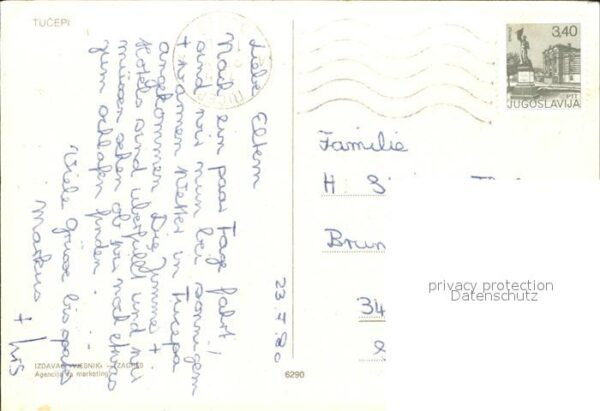 TUČEPI
Liebe Eltern
Nach ein paar Tage fahrt
sind wir nun bei sonnigem
+ warmen Wetter in Tucepi
angekommen. Die Zimmer +
Hotels sind überfüllt und wir
müssen sehen ob wir noch etwas
zum schlafen finden.
Viele Grüsse bis später
Markus
+ Iris
23.7.80
IZDAVAČ »VJESNIK« — ZAGREB
Agencija za marketing
6290
3,40
PTT
JUGOSLAVIJA
Familie
H
Brun
34
privacy protection
Datenschutz